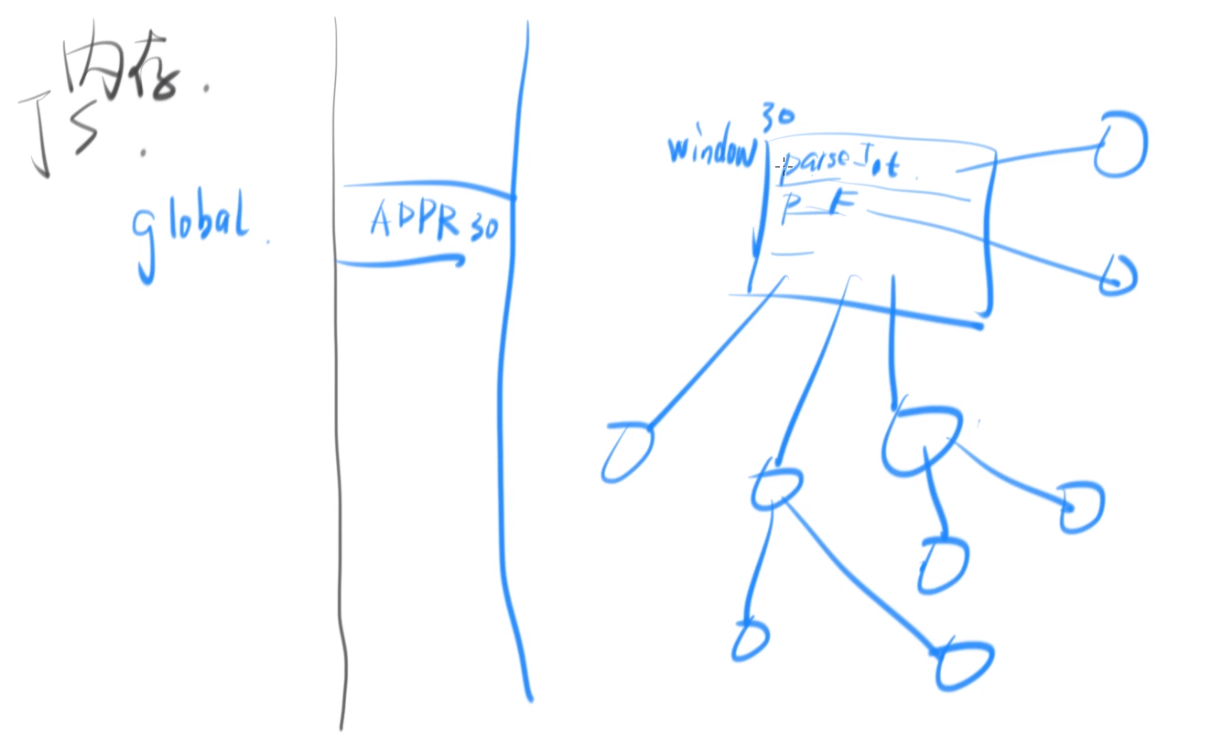 内存.
JS.
global.
ADPR 30
30
window
parseInt.
p_F